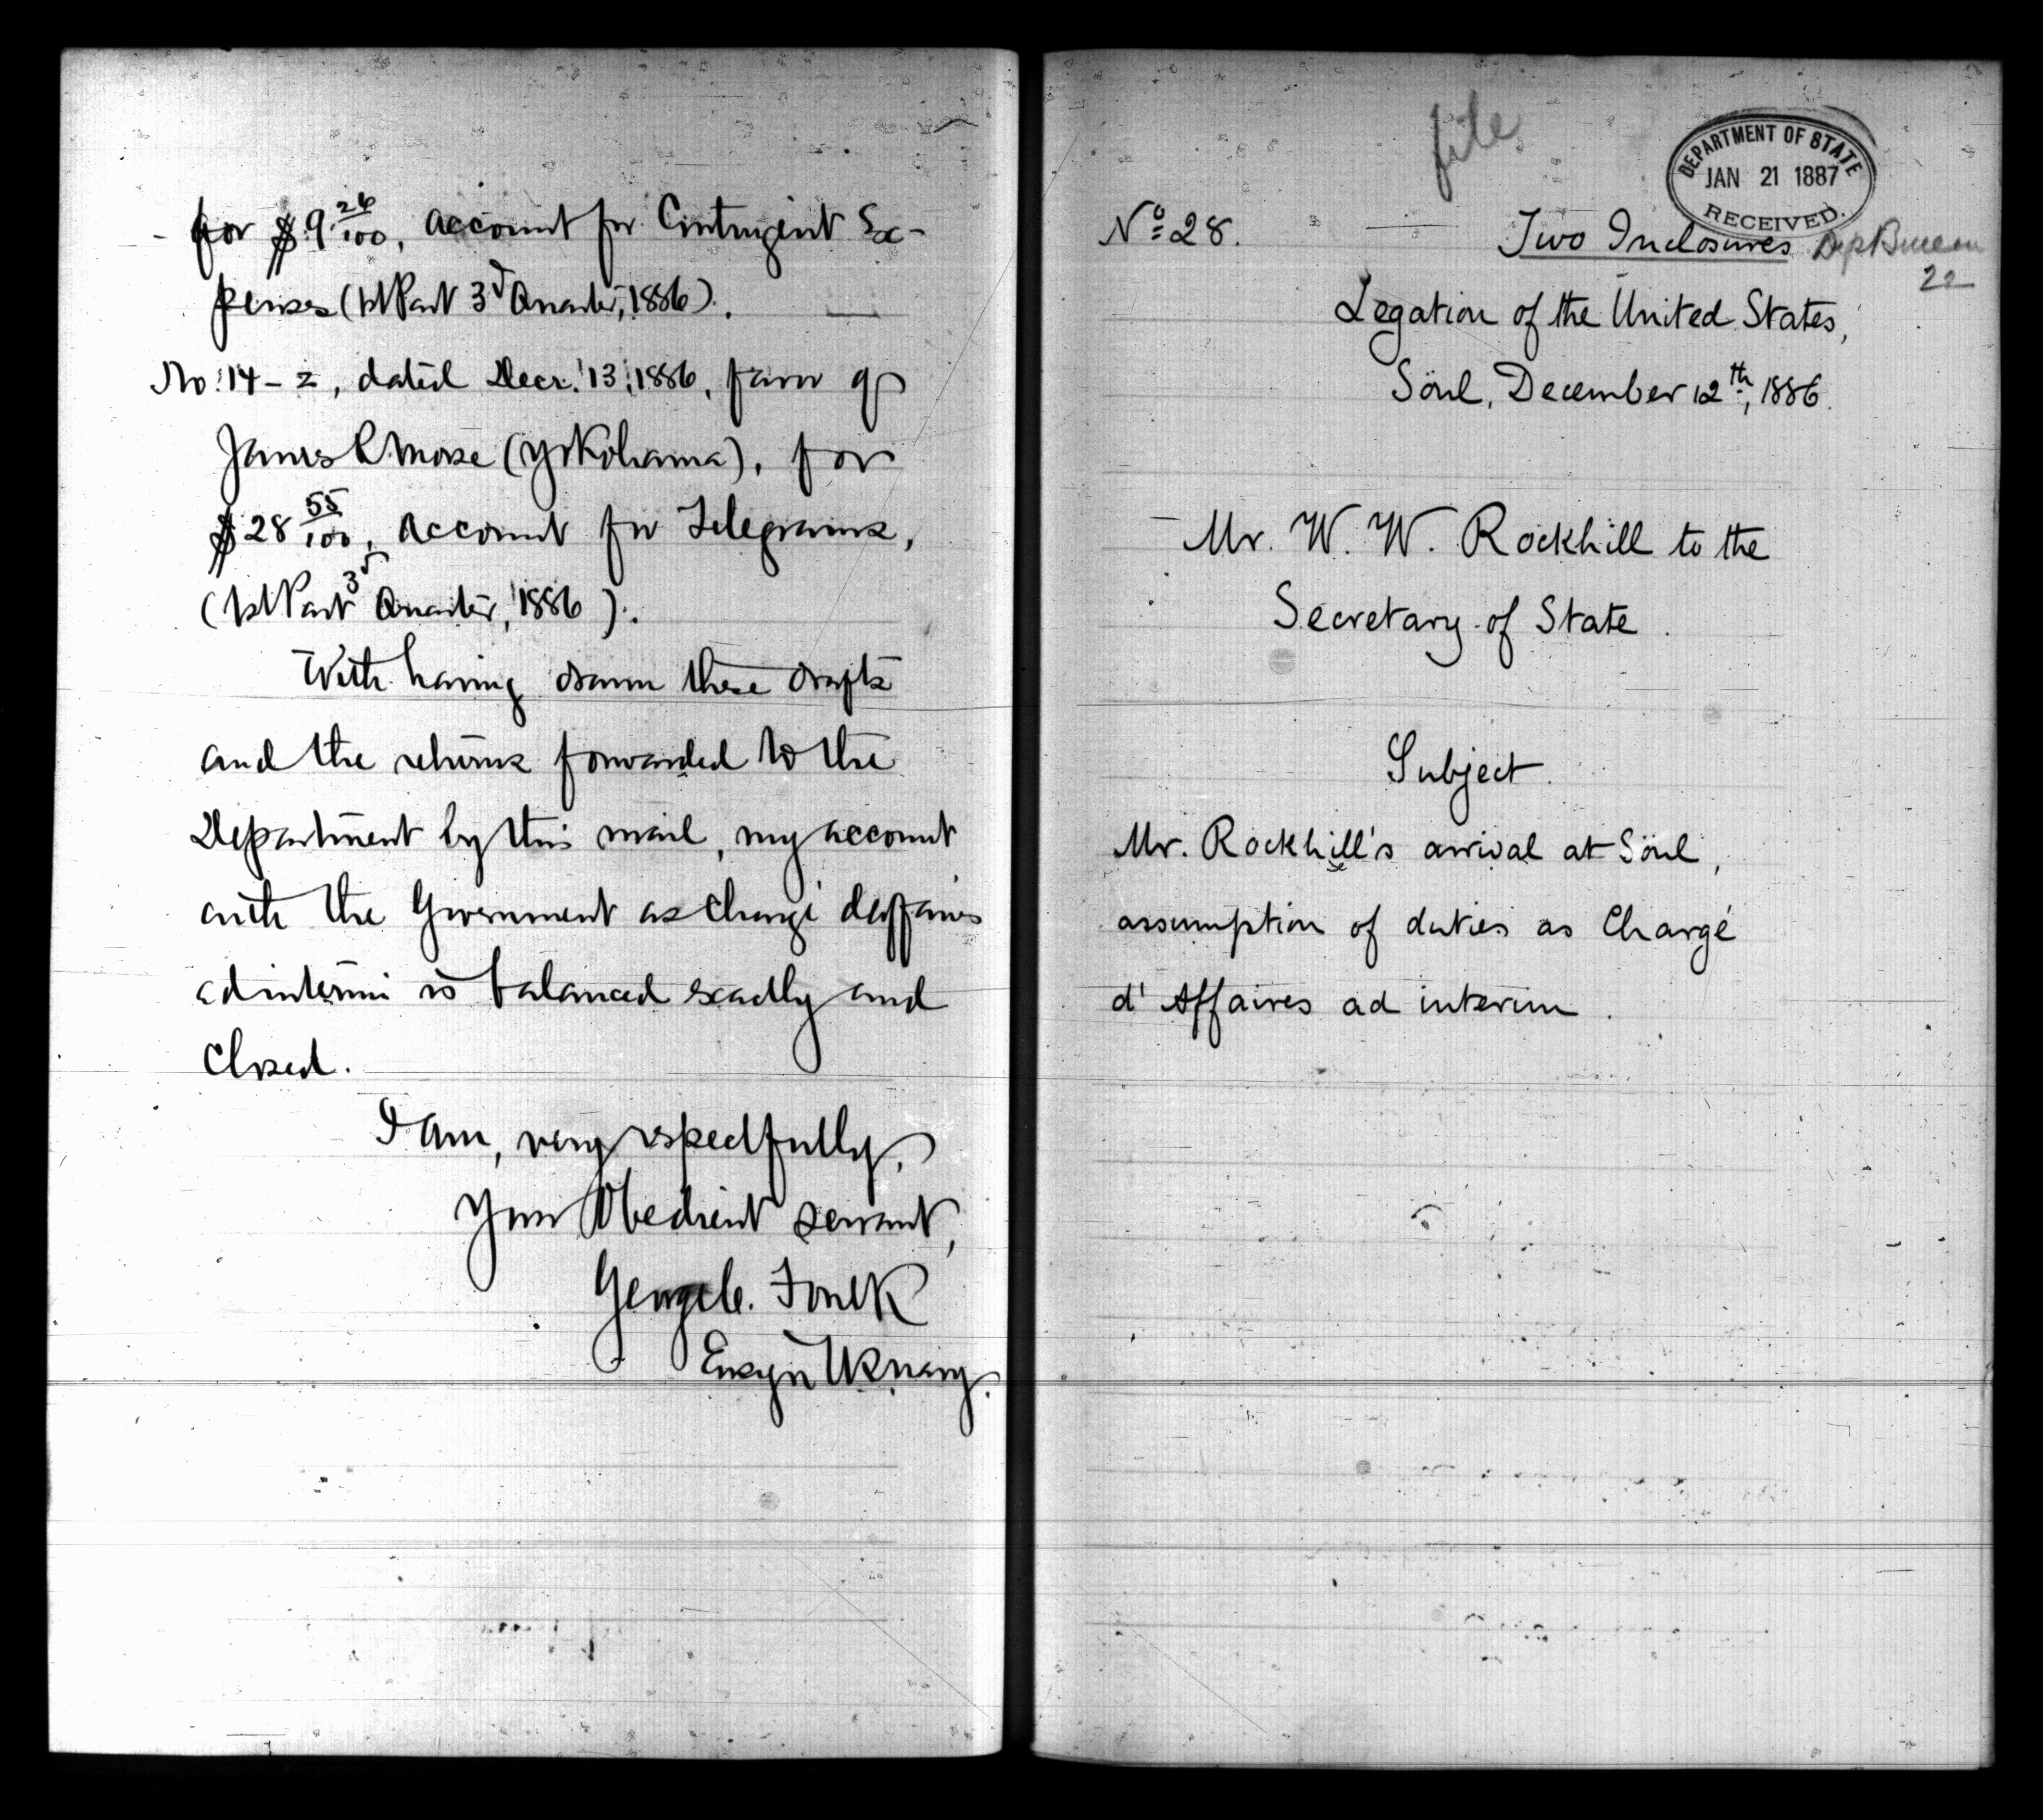 for $9 26/100, account for Contingent Ex-
penses (1st Part 3d Quarter, 1886).
No. 14-2, dated Decr. 13, 1886, favor of
James R Morse (Yokohama), for
$28 55/100, account for Telegrams,
(1st Part 3d Quarter, 1886).
With having drawn these drafts
and the returns forwarded to the
Department by this mail, my account
with the Government as Chargé d'affaires
ad interim is balanced exactly and
closed.
I am, very respectfully,
Your Obedient servant,
George C. Foulk
Ensign U.S. Navy.
file
DEPARTMENT OF STATE
JAN 21 1887
RECEIVED.
No. 28.
Two Inclosures
Dip Bureau
22
Legation of the United States,
Söul, December 12th, 1886.
Mr. W. W. Rockhill to the
Secretary of State.
Subject.
Mr. Rockhill's arrival at Söul,
assumption of duties as Chargé
d'Affaires ad interim.